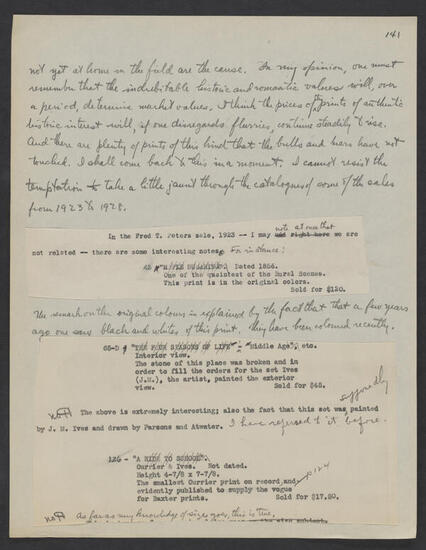 141
not yet at home in the field are the cause. In my opinion, one must
remember that the indubitable historic and romantic values will, over
a period, determine market values. I think the prices of prints of authentic
historic interest will, if one disregards flurries, continue steadily to rise.
And there are plenty of prints of this kind that the bulls and bears have not
touched. I shall come back to this in a moment. I cannot resist the
temptation to take a little jaunt through the catalogues of some of the sales
from 1923 to 1928.
In the Fred T. Peters sale, 1923 -- I may note at once that we are
not related -- there are some interesting notes. For instance:
Dated 1856.
One of the quaintest of the Rural Scenes.
This print is in the original colors.
Sold for $120.
The remark on the original colours is explained by the fact that a few years
ago one saw black and whites of this print. They have been coloured recently.
65-D "THE FOUR SEASONS OF LIFE" - "Middle Age", etc.
Interior view.
The stone of this place was broken and in
order to fill the orders for the set Ives
(J.M.), the artist, painted the exterior
view. Sold for $45.
supposedly
The above is extremely interesting; also the fact that this set was painted
by J. M. Ives and drawn by Parsons and Atwater. I have referred to it before.
126 - "A RIDE TO SCHOOL".
Currier & Ives. Not dated.
Height 4-7/8 x 7-7/8.
The smallest Currier print on record, and
evidently published to supply the vogue
for Baxter prints. Sold for $17.20.
As far as my knowledge of sizes goes, this is true.